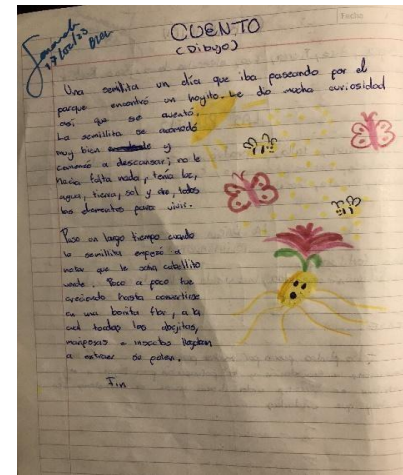 17/02/23
CUENTO
(Dibujo)
Una semillita un día que iba paseando por el
parque encontró un hoyito. Le dió mucha curiosidad
así que se aventó.
La semillita se acomodó
muy bien y
comenzó a descansar; no le
hacía falta nada, tenía luz,
agua, tierra, sol y aire, todos
los elementos para vivir.
Paso un largo tiempo cuando
la semillita empezó a
notar que le salía cabellito
verde. Poco a poco fue
creciendo hasta convertirse
en una bonita flor, a la
cual todas las abejitas,
mariposas e insectos llegaban
a extraer su polen.
Fin